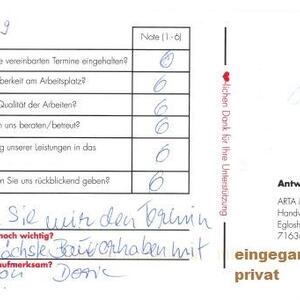 9
Note (1 - 6)
e vereinbarten Termine eingehalten? 6
berkeit am Arbeitsplatz? 6
Qualität der Arbeiten? 6
n uns beraten/betreut? 6
g unserer Leistungen in das 6
n Sie uns rückblickend geben? 6
Sie mir den Termin
noch wichtig?
ächste Bauvorhaben mit
ufmerksam?
lichen Dank für Ihre Unterstützung
Antw
ARTA
Handw
Eglosh
7163
eingegan
privat